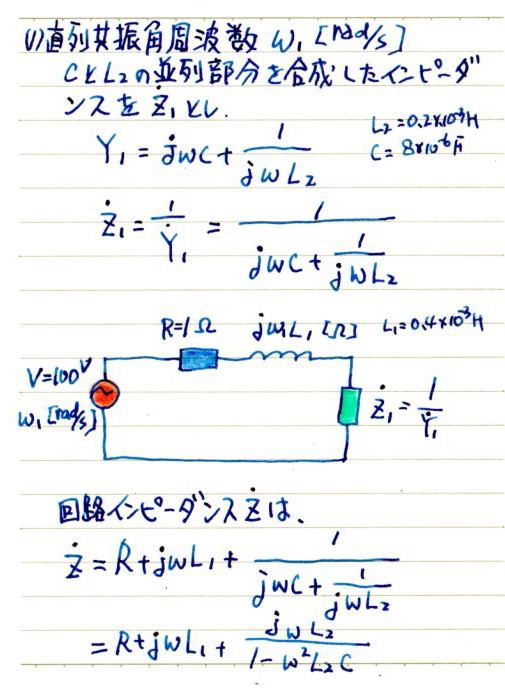 (1)直列共振角周波数 ω₁ [rad/s]
CとL₂の並列部分を合成したインピーダ
ンスを Ż₁とし.
L₂=0.2×10⁻³H
C=8×10⁻⁶F
Ẏ₁ = jωC + 1/(jωL₂)
Ż₁ = 1/Ẏ₁ = 1/(jωC + 1/(jωL₂))
R=1Ω jω₁L₁ [Ω] L₁=0.4×10⁻³H
V=100V
ω₁ [rad/s]
Ż₁ = 1/Ẏ₁
回路インピーダンス Ż は、
Ż = R + jωL₁ + 1/(jωC + 1/(jωL₂))
= R + jωL₁ + jωL₂/(1-ω²L₂C)